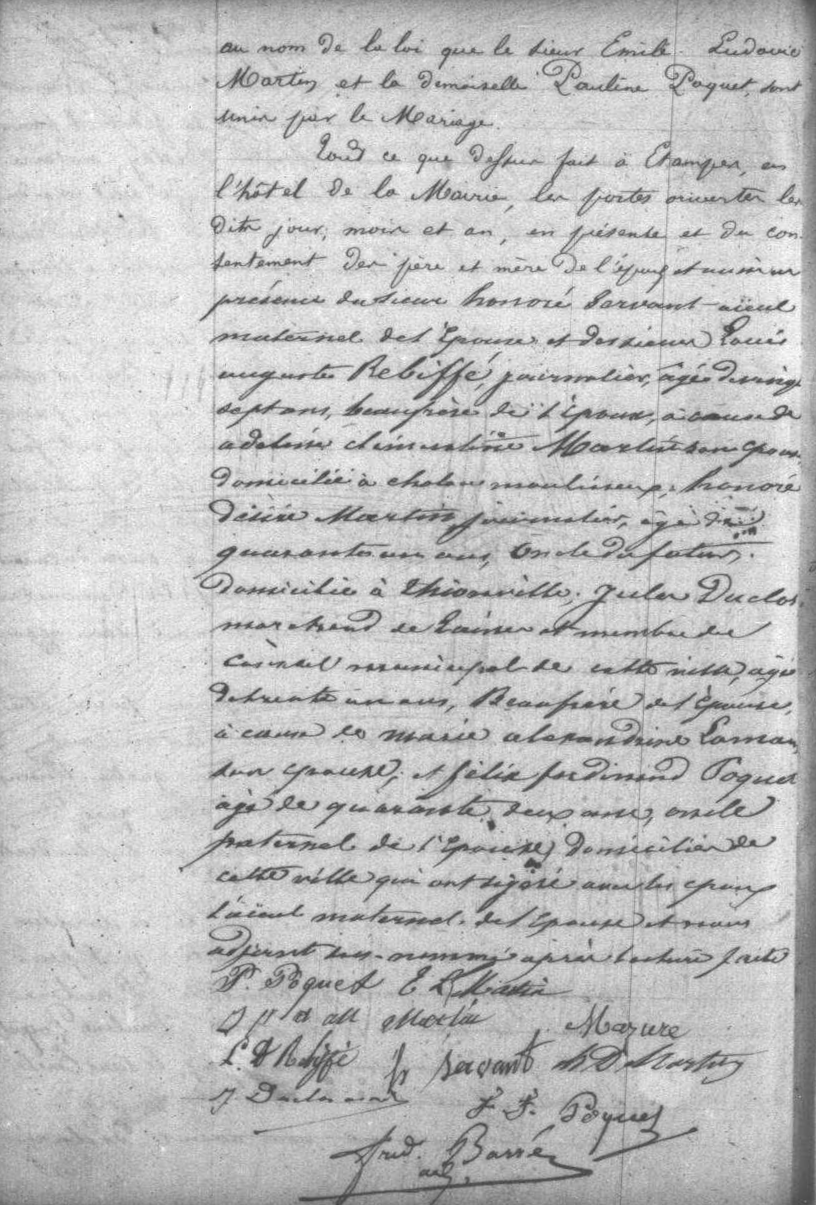 au nom de la loi que le sieur Emile Ludovic
Martin et la demoiselle Pauline Poquet, sont
unis par le Mariage.
Tout ce que dessus fait à Etampes, en
l'hôtel de la Mairie, les portes ouvertes les
dits jour, mois et an, en présence et du con
sentement des père et mère de l'époux et aussi en
présence du sieur honoré Servant aïeul
maternel de l'Epouse et des sieurs Louis
auguste Rebiffé, journalier, âgé de vingt
sept ans, beaufrère de l'Epoux, à cause de
adeline clémentine Martin son epouse
domicilié à chalou moulineux, honoré
désiré Martin journalier, âgé de
quarante un ans, Oncle du futur,
domicilié à thionville; Jules Duclos
marchand de laines et membre du
Conseil municipal de cette ville, âgé
de trente un ans, Beaufrère de l'Epouse,
à cause de marie alexandrine
son epouse; et félix ferdinand Poquet
âgé de quarante deux ans, oncle
paternel de l'Epouse, domiciliés de
cette ville qui ont signé avec les epoux
l'aïeul maternel de l'Epouse et nous
adjoint sus-nommé après lecture faite
P. Poquet E L Martin
Martin Mazure
L. A Rebiffé h Servant h D Martin
J Duclos
F. F. Poquet
frid. Barré
adj.